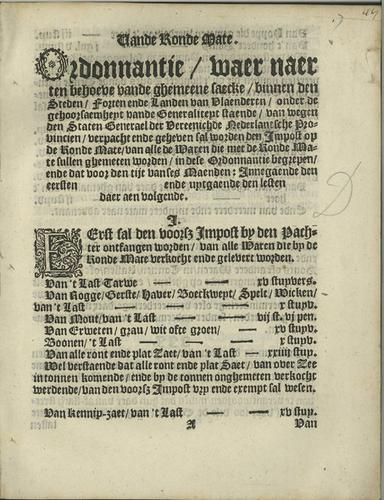 Vande Ronde Mate.
Ordonnantie / waer naer
ten behoeve vande ghemeene saecke / binnen den
Steden / Forten ende Landen van Vlaenderen / onder de
gehoorsaemheyt vande Generaliteyt staende / van wegen
den Staten Generael der Vereenichde Nederlantsche Pro-
vincien / verpacht ende geheven sal worden den Impost op
de Ronde Mate / van alle de Waren die met de Ronde Ma-
te sullen ghemeten worden / in dese Ordonnantie begrepen /
ende dat voor den tijt van ses Maenden: Innegaende den
eersten ende uytgaende den lesten
daer aen volgende.
I.
Eerst sal den voorsz Impost by den Pach-
ter ontfangen worden / van alle Waren die by de
Ronde Mate verkocht ende gelevert worden.
Van 't Last Tarwe — — xv stuyvers.
Van Rogge / Gerste / Haver / Boeckweyt / Spelt / Wicken /
van 't Last — — — x stuyv.
Van Mout / van 't Last — — vij st. vj pen.
Van Erweten / grau / wit ofte groen — xv stuyv.
Boonen / 't Last — — — x stuyv.
Van alle ront ende plat Zaet / van 't Last — xxiiij stuy.
Wel verstaende dat alle ront ende plat Saet / van over Zee
in tonnen komende / ende by de tonnen onghemeten verkocht
werdende / van den voorsz Impost vry ende exempt sal wesen.
Van Kennip-zaet / van 't Last — — xv stuy.
A Van